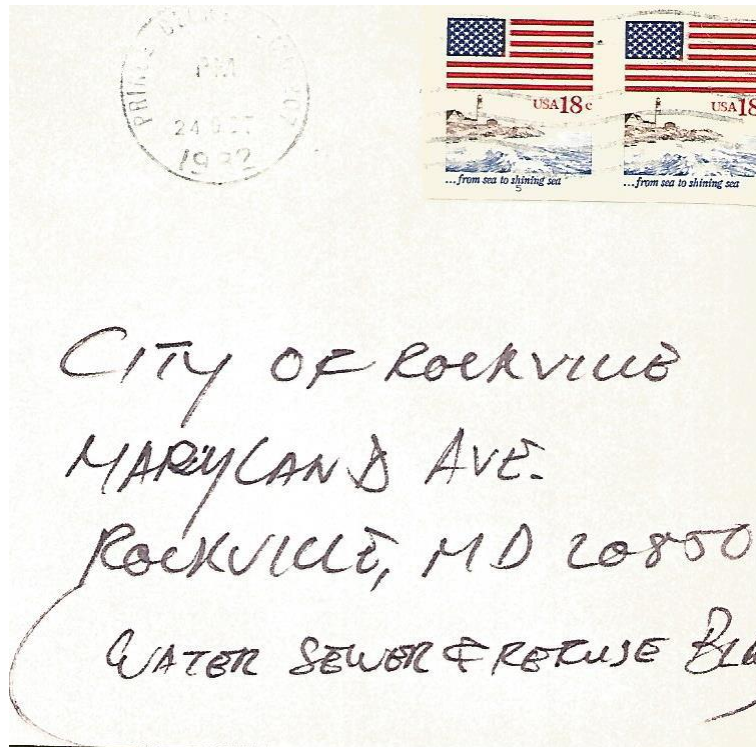 PM
24 OCT
1982
USA 18c
...from sea to shining sea
5
USA 18
...from sea to shining sea
CITY OF ROCKVILLE
MARYLAND AVE.
ROCKVILLE, MD 20850
WATER SEWER & REFUSE